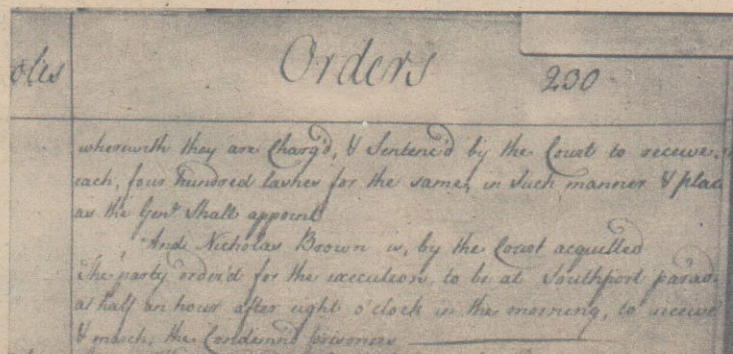 Orders
230
wherewith they are Charg'd, & Sentenc'd by the Court to receive,
each, four hundred lashes for the same, in Such manner & plac
as the Gen.l Shall appoint
And Nicholas Brown is, by the Court acquitted
The party order'd for the execution, to be at Southport parad
at half an hour after eight o'clock in the morning, to receive
& march, the Condemn'd prisoners